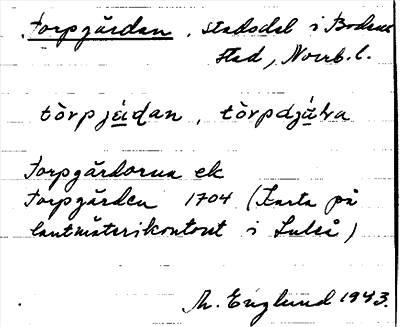 Torpgården, stadsdel i Bodens
stad, Norrb. l.
tòrpjɛ́ɩdan, tòrpdjɩ́tra
Torpgårdorna ek
Torpgården 1704 (Karta på
lantmäterikontoret i Luleå)
M. Englund 1943.